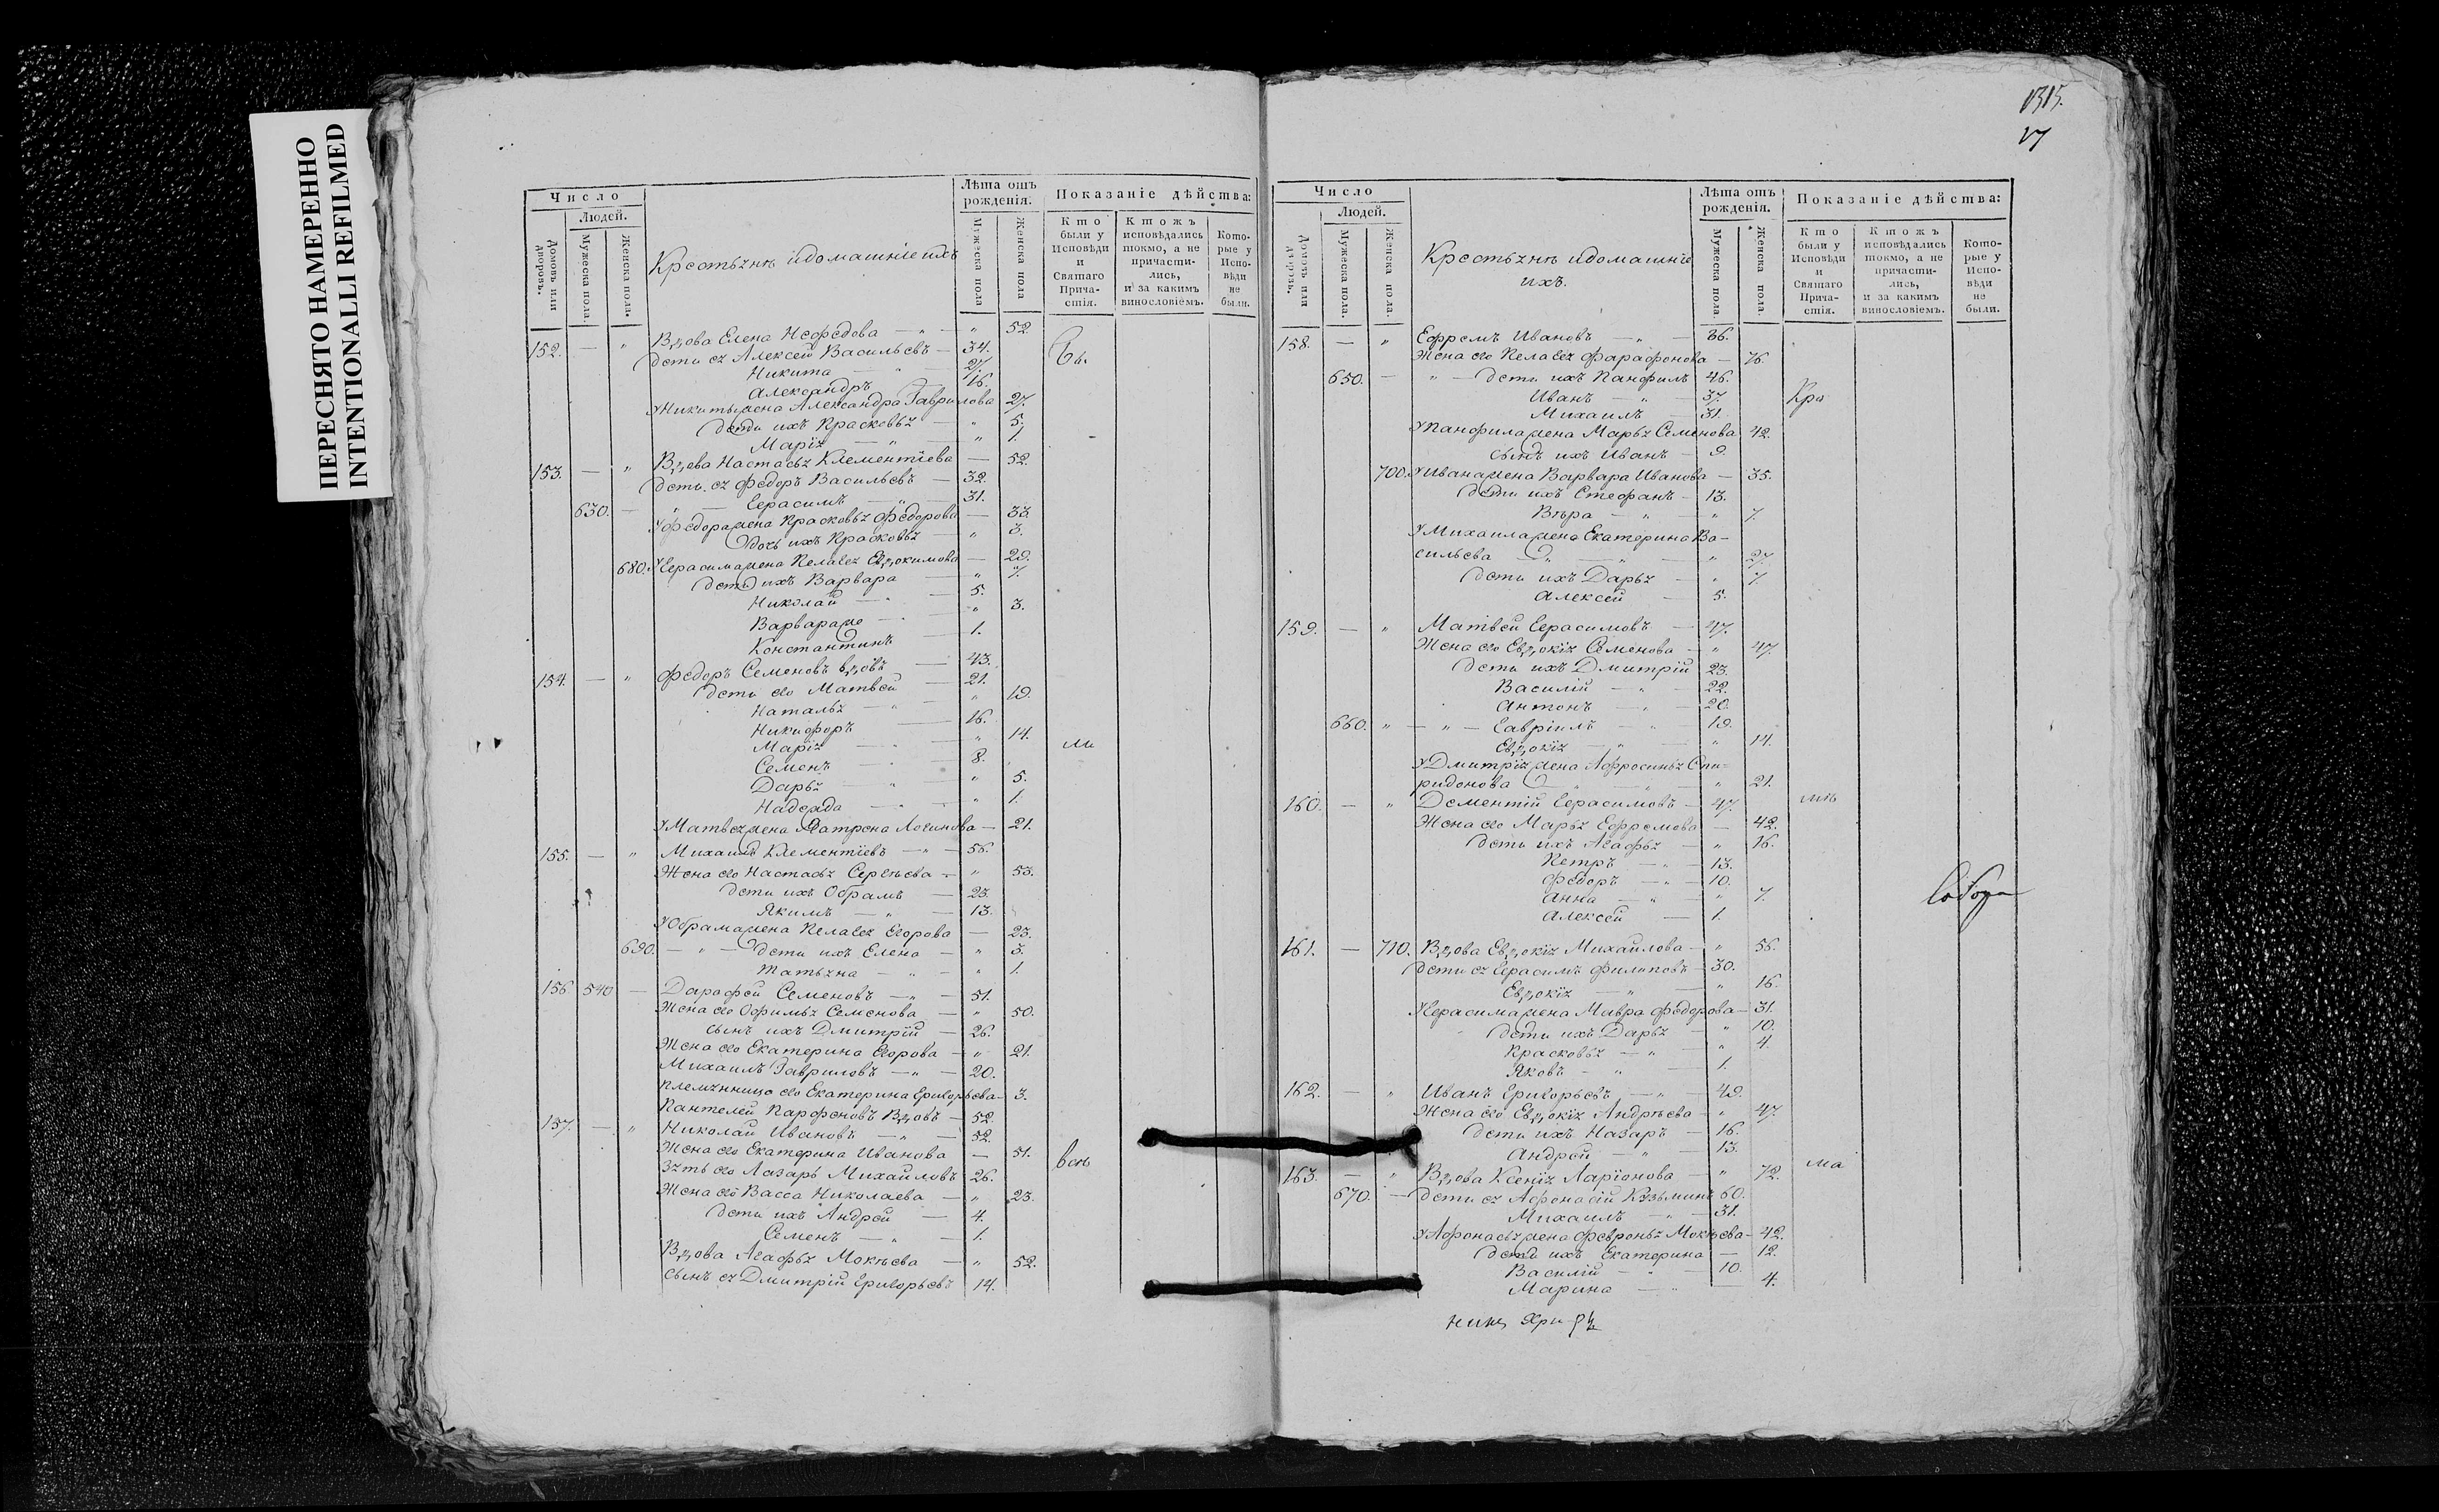 ПЕРЕСНЯТО НАМЕРЕННО
INTENTIONALLI REFILMED
Число
Людей.
Домовъ или дворовъ.
Мужеска пола.
Женска пола.
Крестьянѣ идомашніе ихъ
Лѣта отъ рожденія.
Мужеска пола
Женска пола
Показаніе дѣйства:
Кто были у Исповѣди и Святаго Причастія.
Ктожъ исповѣдались токмо, а не причастились, и за какимъ винословіемъ.
Которые у Исповѣди не были.
152. — „ Вдова Елена Нефедова — „ 52.
дети ея Алексей Васильевъ — 34.
Никита — 27.
Александръ 16.
У Никиты жена Александра Гаврилова 27.
дети ихъ Прасковья — „ 5.
Марія — „ 1.
153. — „ Вдова Настасья Клементіева — 52.
дети ея Федоръ Васильевъ — 32.
630. — „ — Герасимъ — 31.
У Федора жена Прасковья Федорова — 33.
дочь ихъ Прасковья — „ 3.
680. У Герасима жена Пелагея Евдокимова — 29.
дети ихъ Варвара — „ 7.
Николай — 5.
Варвара же — „ 3.
Константинъ 1.
154. — „ Федоръ Семеновъ вдовъ — 43.
дети его Матвей — 21.
Наталья — „ 19.
Никифоръ — 16.
Марія — „ 14.
Семенъ — 8.
Дарья — „ 5.
Надежда — „ 1.
У Матвея жена Матрена Логинова — 21.
155. — „ Михаилъ Клементіевъ — 56.
Жена его Настасья Сергѣева — „ 53.
дети ихъ Обрамъ — 23.
Якимъ — 13.
У Обрама жена Пелагея Егорова — 23.
690. — „ — дети ихъ Елена — „ 3.
Татьяна — „ 1.
156. 540 — Дарофей Семеновъ — 51.
Жена его Офимья Семенова — „ 50.
сынъ ихъ Дмитрій — 26.
Жена его Екатерина Егорова — „ 21.
Михаилъ Гавриловъ — 20.
племянница его Екатерина Григорьева — 3.
Пантелей Парфеновъ Вдовъ — 52.
157. — „ Николай Ивановъ — 52.
Жена его Екатерина Иванова — 51.
Зять его Лазарь Михайловъ 26.
Жена его Васса Николаева — „ 23.
дети ихъ Андрей — 4.
Семенъ — 1.
Вдова Агафья Мокѣева — „ 52.
сынъ ея Дмитрій Григорьевъ 14.
ли
1315.
Число
Людей.
Домовъ или дворовъ.
Мужеска пола.
Женска пола.
Крестьянѣ идомашніе
ихъ.
Лѣта отъ рожденія.
Мужеска пола.
Женска пола.
Показаніе дѣйства:
Кто были у Исповѣди и Святаго Причастія.
Ктожъ исповѣдались токмо, а не причастились, и за какимъ винословіемъ.
Которые у Исповѣди не были.
158. — „ Ефремъ Ивановъ — 86.
Жена его Пелагея Фарафонова — 76.
650. — „ — дети ихъ Панфилъ 46.
Иванъ — 37.
Михаилъ 31.
У Панфила жена Марья Семенова 42.
сынъ ихъ Иванъ — 9.
700. У Ивана жена Варвара Иванова — 35.
дети ихъ Стефанъ — 13.
Вѣра — „ 7.
У Михаила жена Екатерина Ва-
сильева — „ 27.
дети ихъ Дарья — „ 7
Алексей — 5.
159. — „ Матвей Герасимовъ — 47.
Жена его Евдокія Семенова — „ 47.
дети ихъ Дмитрій 23.
Василій — 22.
Антонъ — 20.
660. „ — „ — Гавріилъ — 19.
Евдокія — „ 14.
У Дмитрія жена Афросинья Спи=
ридонова — „ 21.
160. — „ Дементій Герасимовъ — 47.
Жена его Марья Ефремова — 42.
дети ихъ Агафья — „ 16.
Петръ — 13.
Федоръ — 10.
Анна — „ 7.
Алексей — 1.
161. — 710. Вдова Евдокія Михайлова — „ 56.
дети ея Герасимъ Филиповъ — 30.
Евдокія — „ 16.
У Герасима жена Мавра Федорова — 31.
дети ихъ Дарья — „ 10.
Прасковья — „ 4.
Яковъ — 1.
162. — „ Иванъ Григорьевъ — 49.
Жена его Евдокія Андрѣева — „ 47.
дети ихъ Назаръ — 16.
Андрей — 13.
163. — „ Вдова Ксенія Ларіонова — „ 72.
670. — дети ея Афонасій Кузьминъ 60.
Михаилъ — 31.
У Афонасья жена Февронья Мокѣева — 42.
дети ихъ Екатерина — 12.
Василій — 10.
Марина — 4.
ма